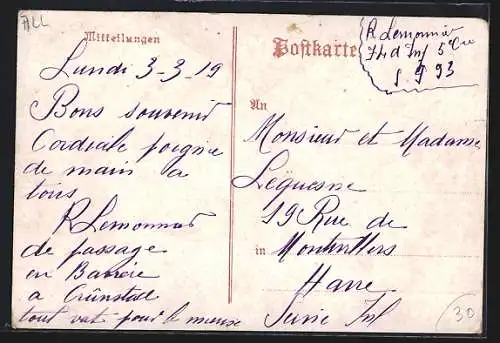 ALL
Mitteilungen
Postkarte
R Lemonnier
74 d Inf 5e Cie
S. P 93
Lundi 3-3-19
Bons souvenir
Cordiale poignée
de main a
tous
R Lemonnier
de passage
en Bavière
a Grünstadt
tout vat pour le mieux
An
Monsieur et Madame
Lequesne
19 Rue de
in Montivilliers
Havre
Seine Inf
30